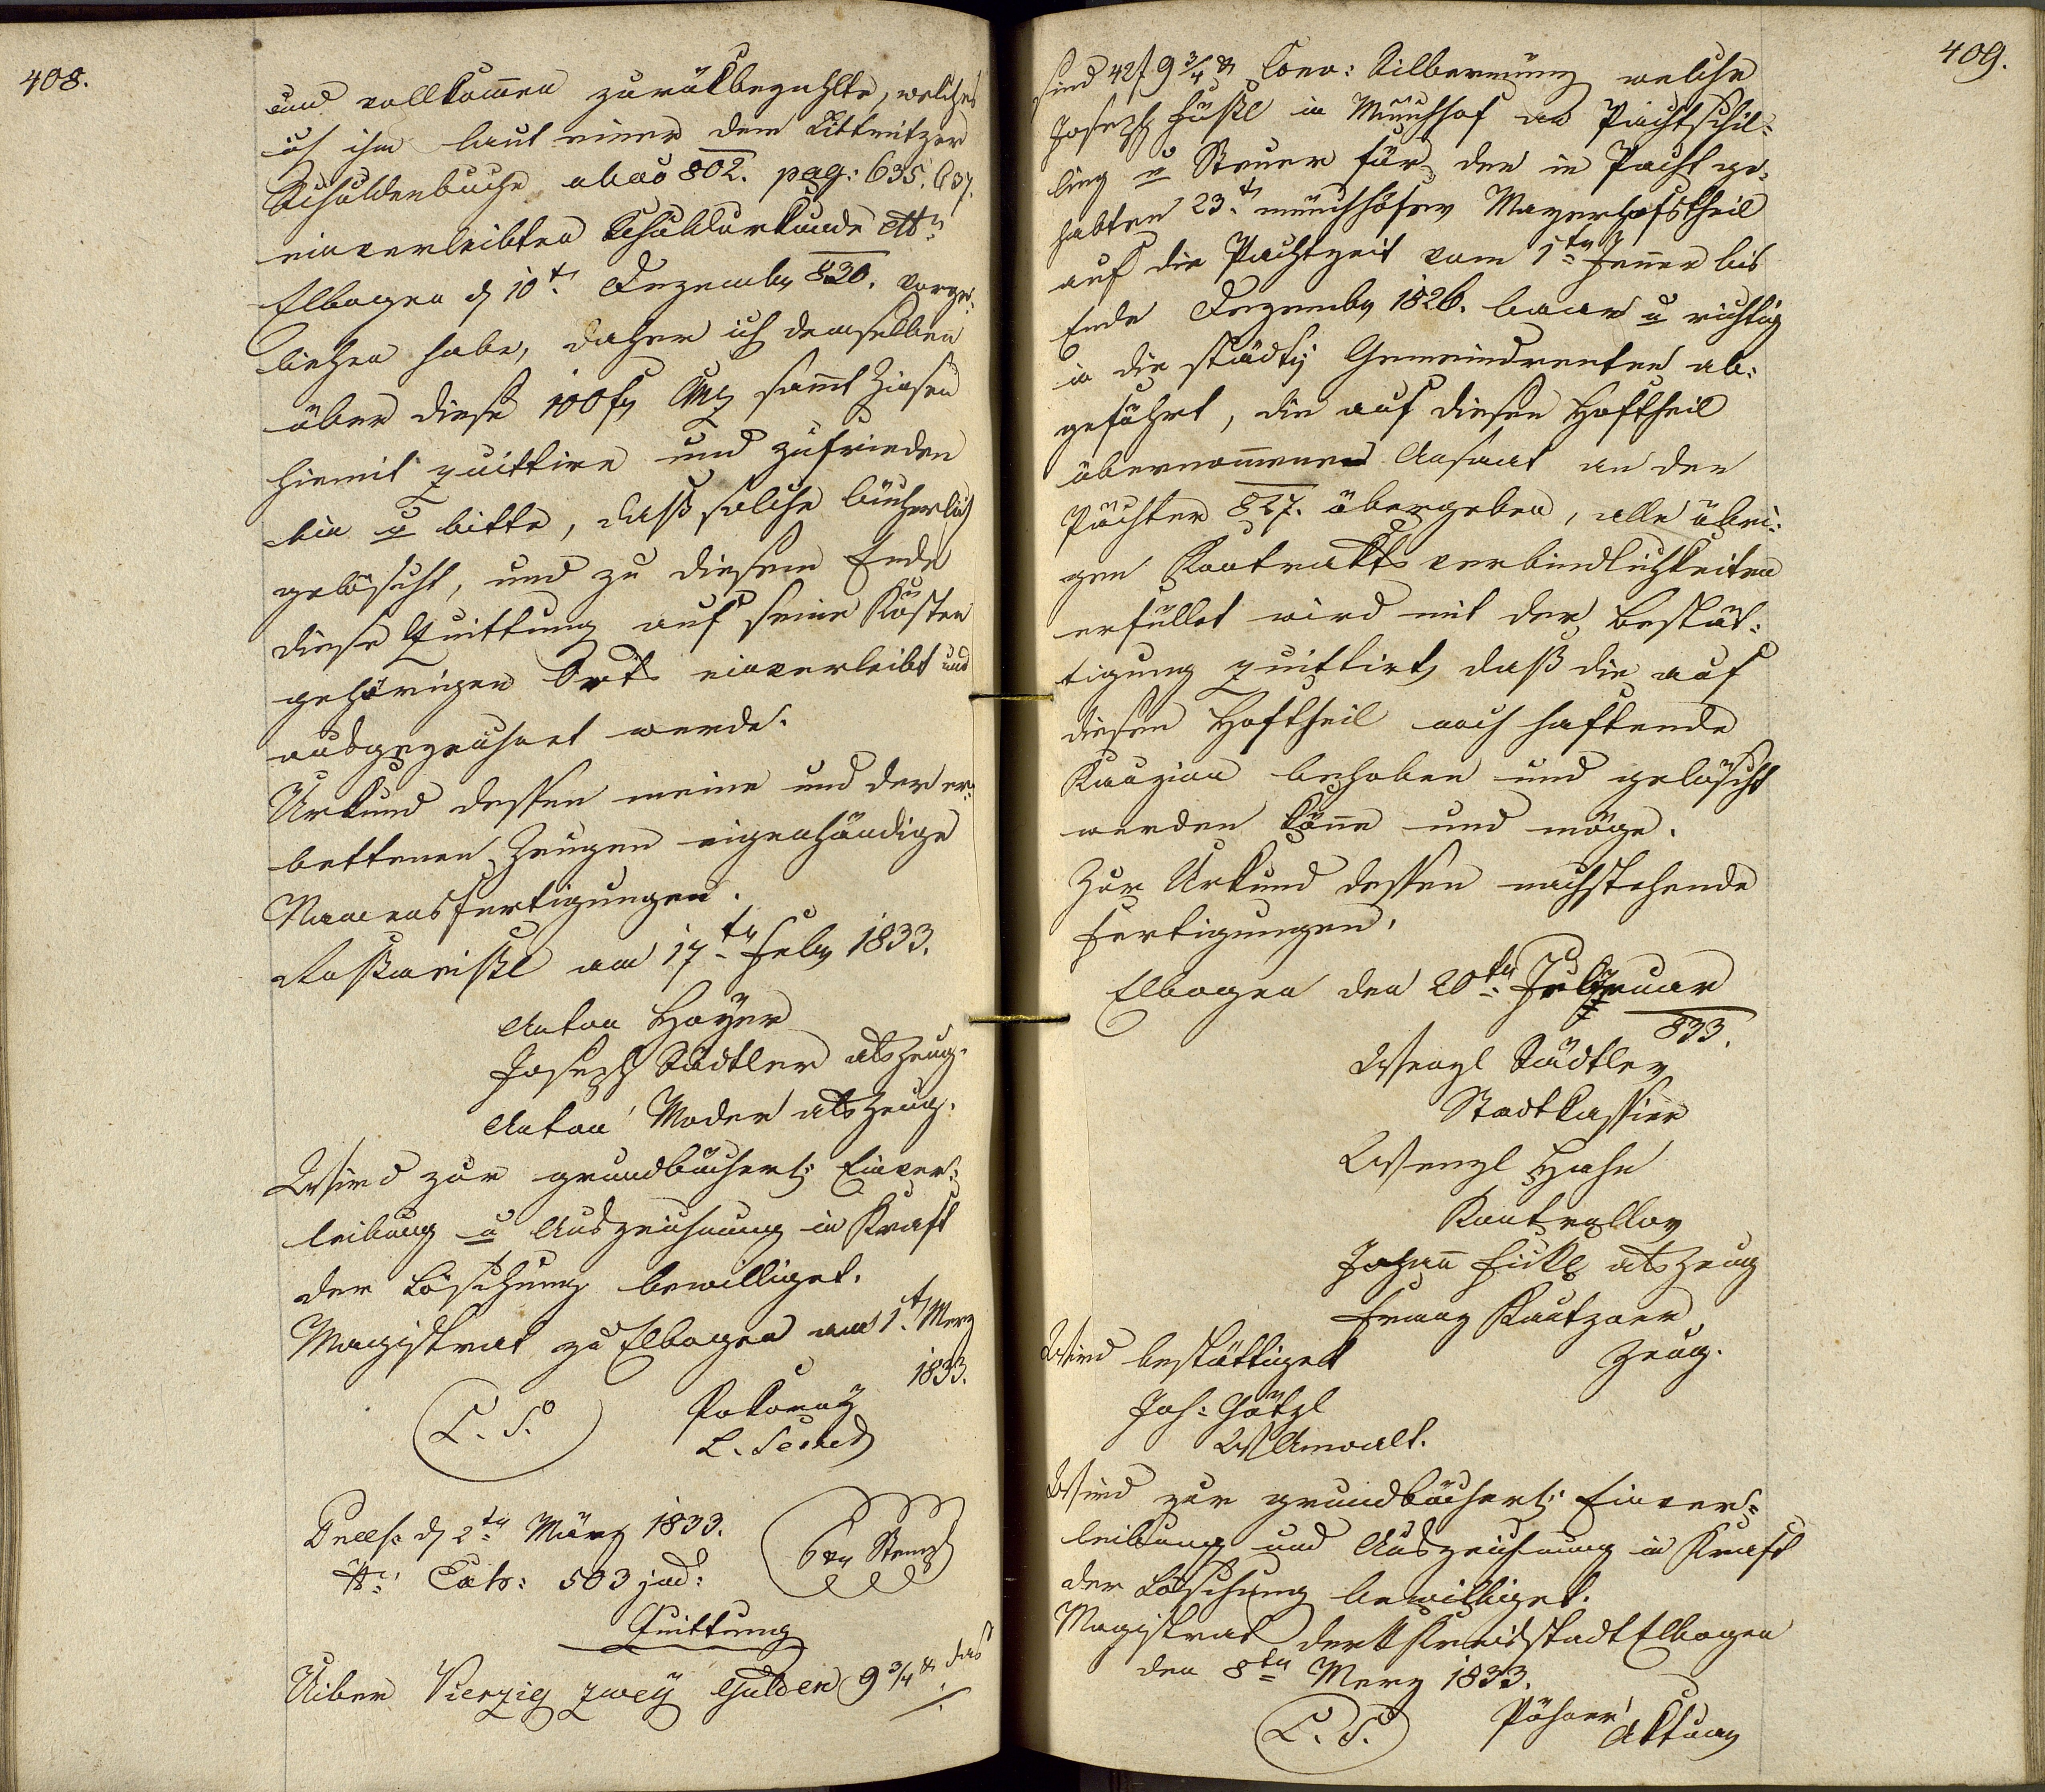 408.
und vollkom̄en zurükbezahlte, welches
ich ihm laut einer dem Littmitzer
Schuldenbuche abao 802. pag: 635. 637.
einverleibten Schuldurkunde
Elbogen d 10t. Dezember 830. vorge¬
liehen habe, daher ich demselben
über diese 100 fl CMz sam̄t Zinsen
hiemit quittire und zufrieden
bin u bitte, daß solche bücherlich
gelöscht, und zu diesem Ende
diese Quittung auf seine Kösten
gehörigen Orts einverleibt und
ausgezeichnet werde.
Urkund dessen meine und der er¬
bettenen Zeugen eigenhändige
Namensfertigungen.
am 17ten Feber 1833.
Anton Hoyer
Joseph Städtler als Zeug.
Anton Moder als Zeug.
Wird zur grundbücherl: Einver¬
leibung u Auszeichnung in Kraft
der Löschung bewilliget.
Magistrat zu Elbogen am 1t Merz
1833.
L. S. Pokorny
Praes: d 2ten März 1833.
503 jud:
6 Xr Stempl
Quittung
Uiber Vierzig zwey Gulden 9 3/4 Xr. das
409.
sind 42 f 9 3/4 Xr Conv: Silbermünz welche
Joseph in Münchhof an Pachtschil¬
ling u Steuer für den in Pacht ge¬
habten 23t. münchhöfer Mayerhofstheil
auf die Pachtzeit vom 1ten Jenner bis
Ende Dezember 1826. baar u richtig
in die städti Gemeindrenten ab¬
geführt, die auf diesen Hoftheil
übernom̄enen Ansaat an den
Pächter 827. übergeben, alle übri¬
gen Kontraktsverbindlichkeiten
erfüllet wird mit der Bestät¬
tigung quittirt, daß die auf
diesen Hoftheil noch haftende
Kauzion behoben und gelöscht
werden kön̄e und möge.
Zur Urkund dessen nachstehende
Fertigungen.
Elbogen den 20ten Februar
833.
Wenzl Städtler
Stadtkassier
Wenzl Hahn
Kontrollor
Johan̄ Fickl als Zeug
Franz Kautzner
Zeug.
Wird bestättiget
Joh: Götzl
W Anwalt.
Wird zur grundbücherl: Einver¬
leibung und Auszeichnung in Kraft
der Löschung bewilliget.
Magistrat der K Kreisstadt Elbogen
den 8ten Merz 1833.
L. S. Pöhner
Aktuar